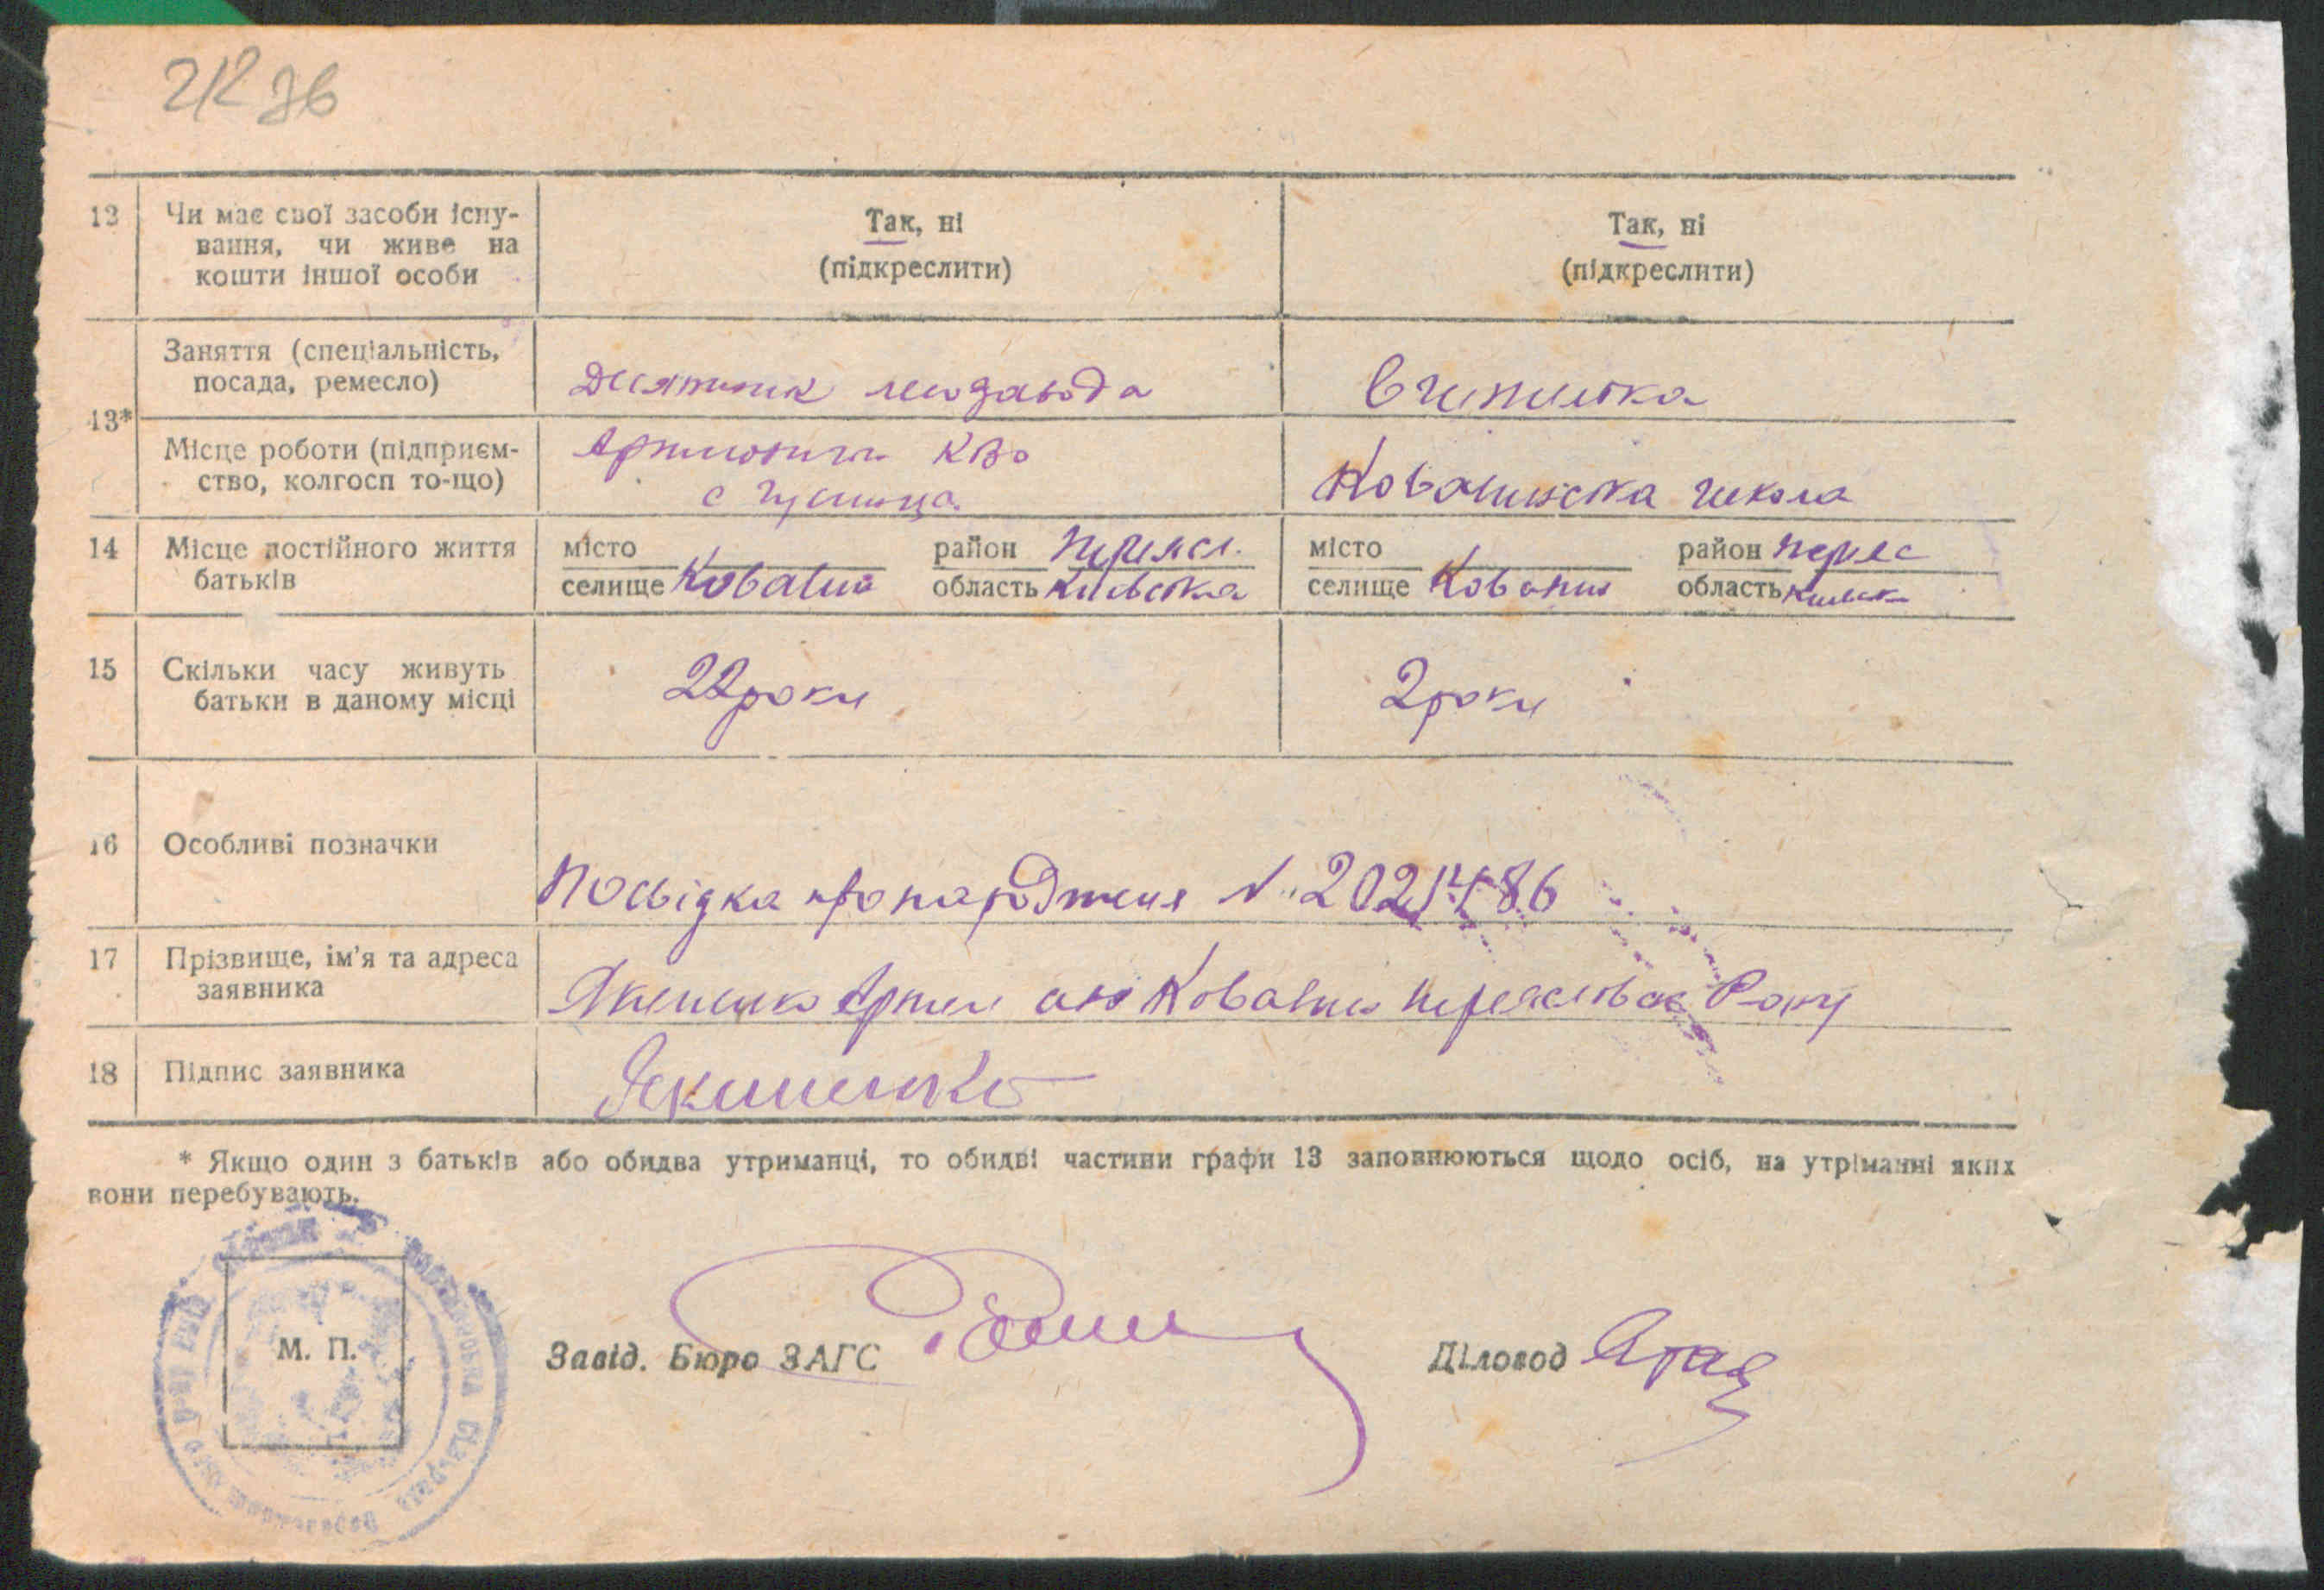 212 зв
12 Чи має свої засоби існу-
вання, чи живе на
кошти іншої особи
Так, ні
(підкреслити)
Так, ні
(підкреслити)
13*
Заняття (спеціальність,
посада, ремесло)
Десятник лісозавода
Вчителька
Місце роботи (підприєм-
ство, колгосп то-що)
КВО
с
Ковалинська школа
14 Місце постійного життя
батьків
місто
селище Ковалин
район Переясл.
область Київська
місто
селище Ковалин
район Переяс
область Київськ
15 Скільки часу живуть
батьки в даному місці
22 роки
2 роки
16 Особливі позначки
Посвідка про народження №
17 Прізвище, ім'я та адреса
заявника
Якименко Ковалин Переяславськ Р-ону
18 Підпис заявника
Якименко
* Якщо один з батьків або обидва утриманці, то обидві частини графи 13 заповнюються щодо осіб, на утріманні яких
вони перебувають.
М. П.
Завід. Бюро ЗАГС
Діловод